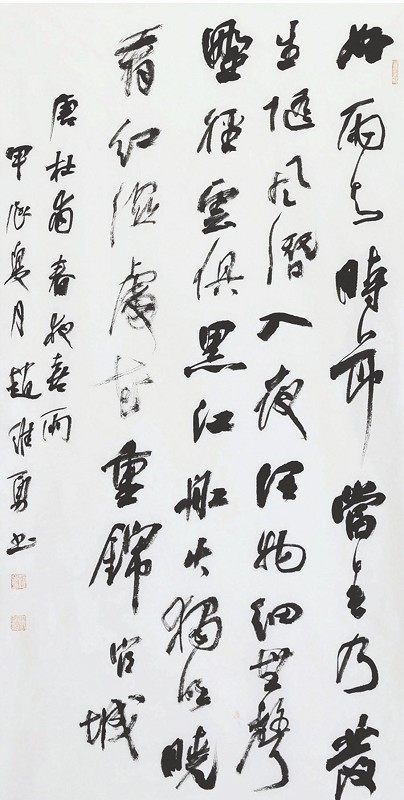 好雨知時節當春乃發
生隨風潛入夜潤物細無聲
野徑雲俱黑江船火獨明曉
看紅濕處花重錦官城
唐杜甫春夜喜雨
甲辰夏月趙維勇書